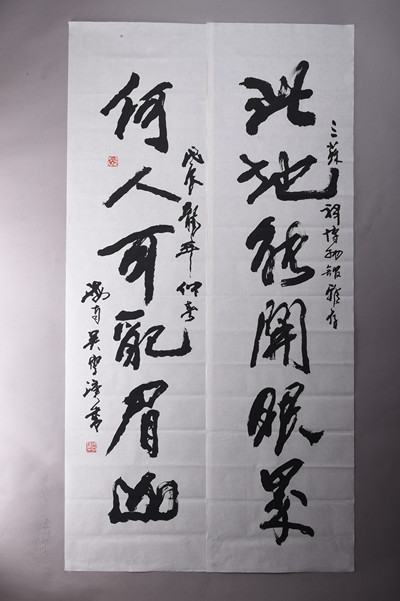 此地能開眼界
三蘇祠博物館雅存
何人可配眉山
戊辰龍年仲春
吳